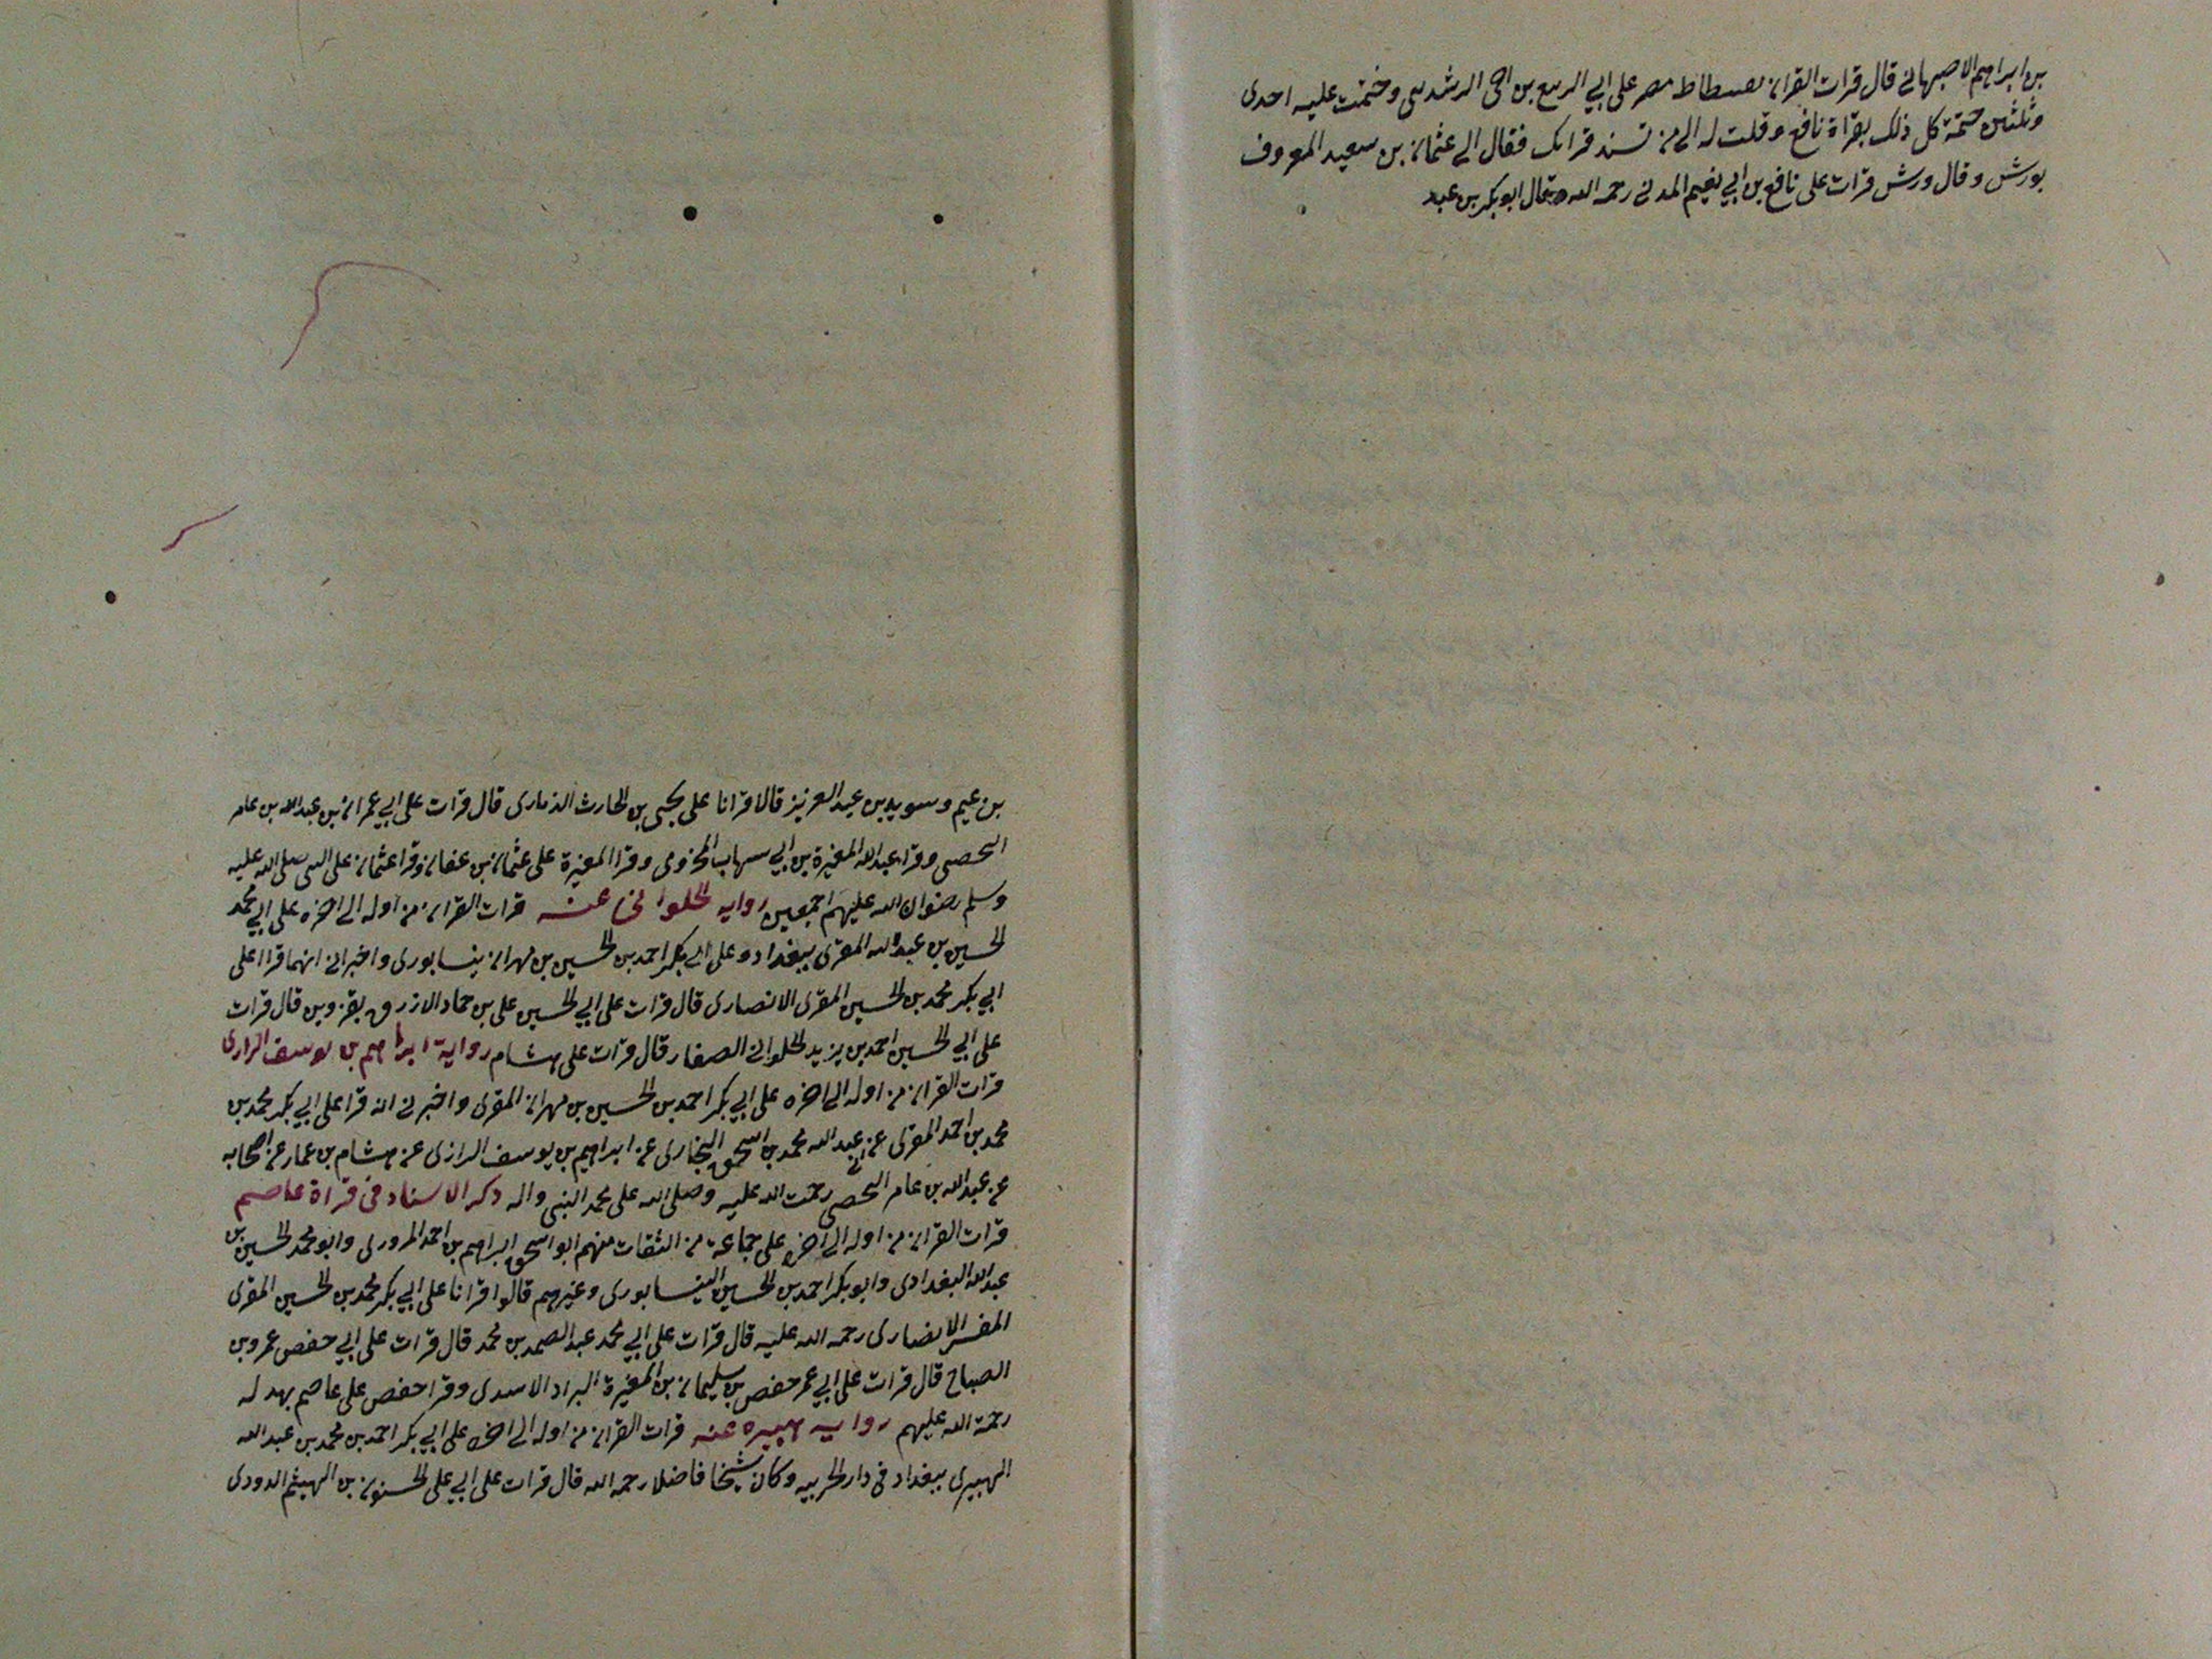 بن ابراهيم الاصبهاني قال قرات القران بفسطاط مصر على ابي الربيع بن اخى الرشدينى وختمت عليه احدى
وثلثين ختمة كل ذلك بقراة نافع وقلت له الى من تسند قرانك فقال الى عثمان بن سعيد المعروف
بورش وقال ورش قرات على نافع بن ابي نعيم المدنى رحمه الله وقال ابو بكر بن عبد
بن عيم وسويد بن عبد العزيز قالا قرانا على يحيى بن الحارث الذمارى قال قرات على ابي عمران بن عبد الله بن عامر
اليحصبى وقرا عبد الله المغيرة بن ابي سهاب المخزومى وقرا المغيرة على عثمان بن عفان وقرا عثمان على النبى صلى الله عليه
وسلم رضوان الله عليهم اجمعين رواية الحلوانى عنه قرات القران من اوله الى اخره على ابي محمد
الحسين بن عبد الله المقرى ببغداد وعلى ابي بكر احمد بن الحسين بن مهران بنيسابورى واخبرانى انهما قراا على
ابي بكر محمد بن الحسين المقرى الانصارى قال قرات على ابي الحسين على بن حماد الازرق بقزوين قال قرات
على ابي الحسين احمد بن يزيد الحلوانى الصفار قال قرات على هشام رواية ابراهيم بن يوسف الرازى
قرات القران من اوله الى اخره على ابي بكر احمد بن الحسين بن مهران المقرى واخبرنى انه قرا على ابي بكر محمد بن
محمد بن احمد المقرى عن عبد الله محمد بن اسحق البخارى عن ابراهيم بن يوسف الرازى عن هشام بن عمار عن اصحابه
عن عبد الله بن عامر اليحصبى رحمت الله عليه وصلى الله على محمد النبى واله ذكر الاسناد فى قراة عاصم
قرات القران من اوله الى اخره على جماعة من الثقات منهم ابو اسحق ابراهيم بن احمد المرورى وابو محمد الحسين بن
عبد الله البغدادى وابو بكر احمد بن الحسين النيسابورى وغيرهم قالوا قرانا على ابي بكر محمد بن الحسين المقرى
المفسر الانصارى رحمه الله عليه قال قرات على ابي محمد عبد الصمد بن محمد قال قرات على ابي حفص عمرو بن
الصباح قال قرات على ابي عمر حفص بن سليمان بن المغيرة البزاز الاسدى وقرا حفص على عاصم بهدله
رحمة الله عليهم رواية هبيره عنه قرات القران من اوله الى اخره على ابي بكر احمد بن محمد بن عبد الله
الهبيرى ببغداد فى دار الحربيه وكان شيخا فاضلا رحمه الله قال قرات على ابي على الحسنون بن الهيثم الدودى